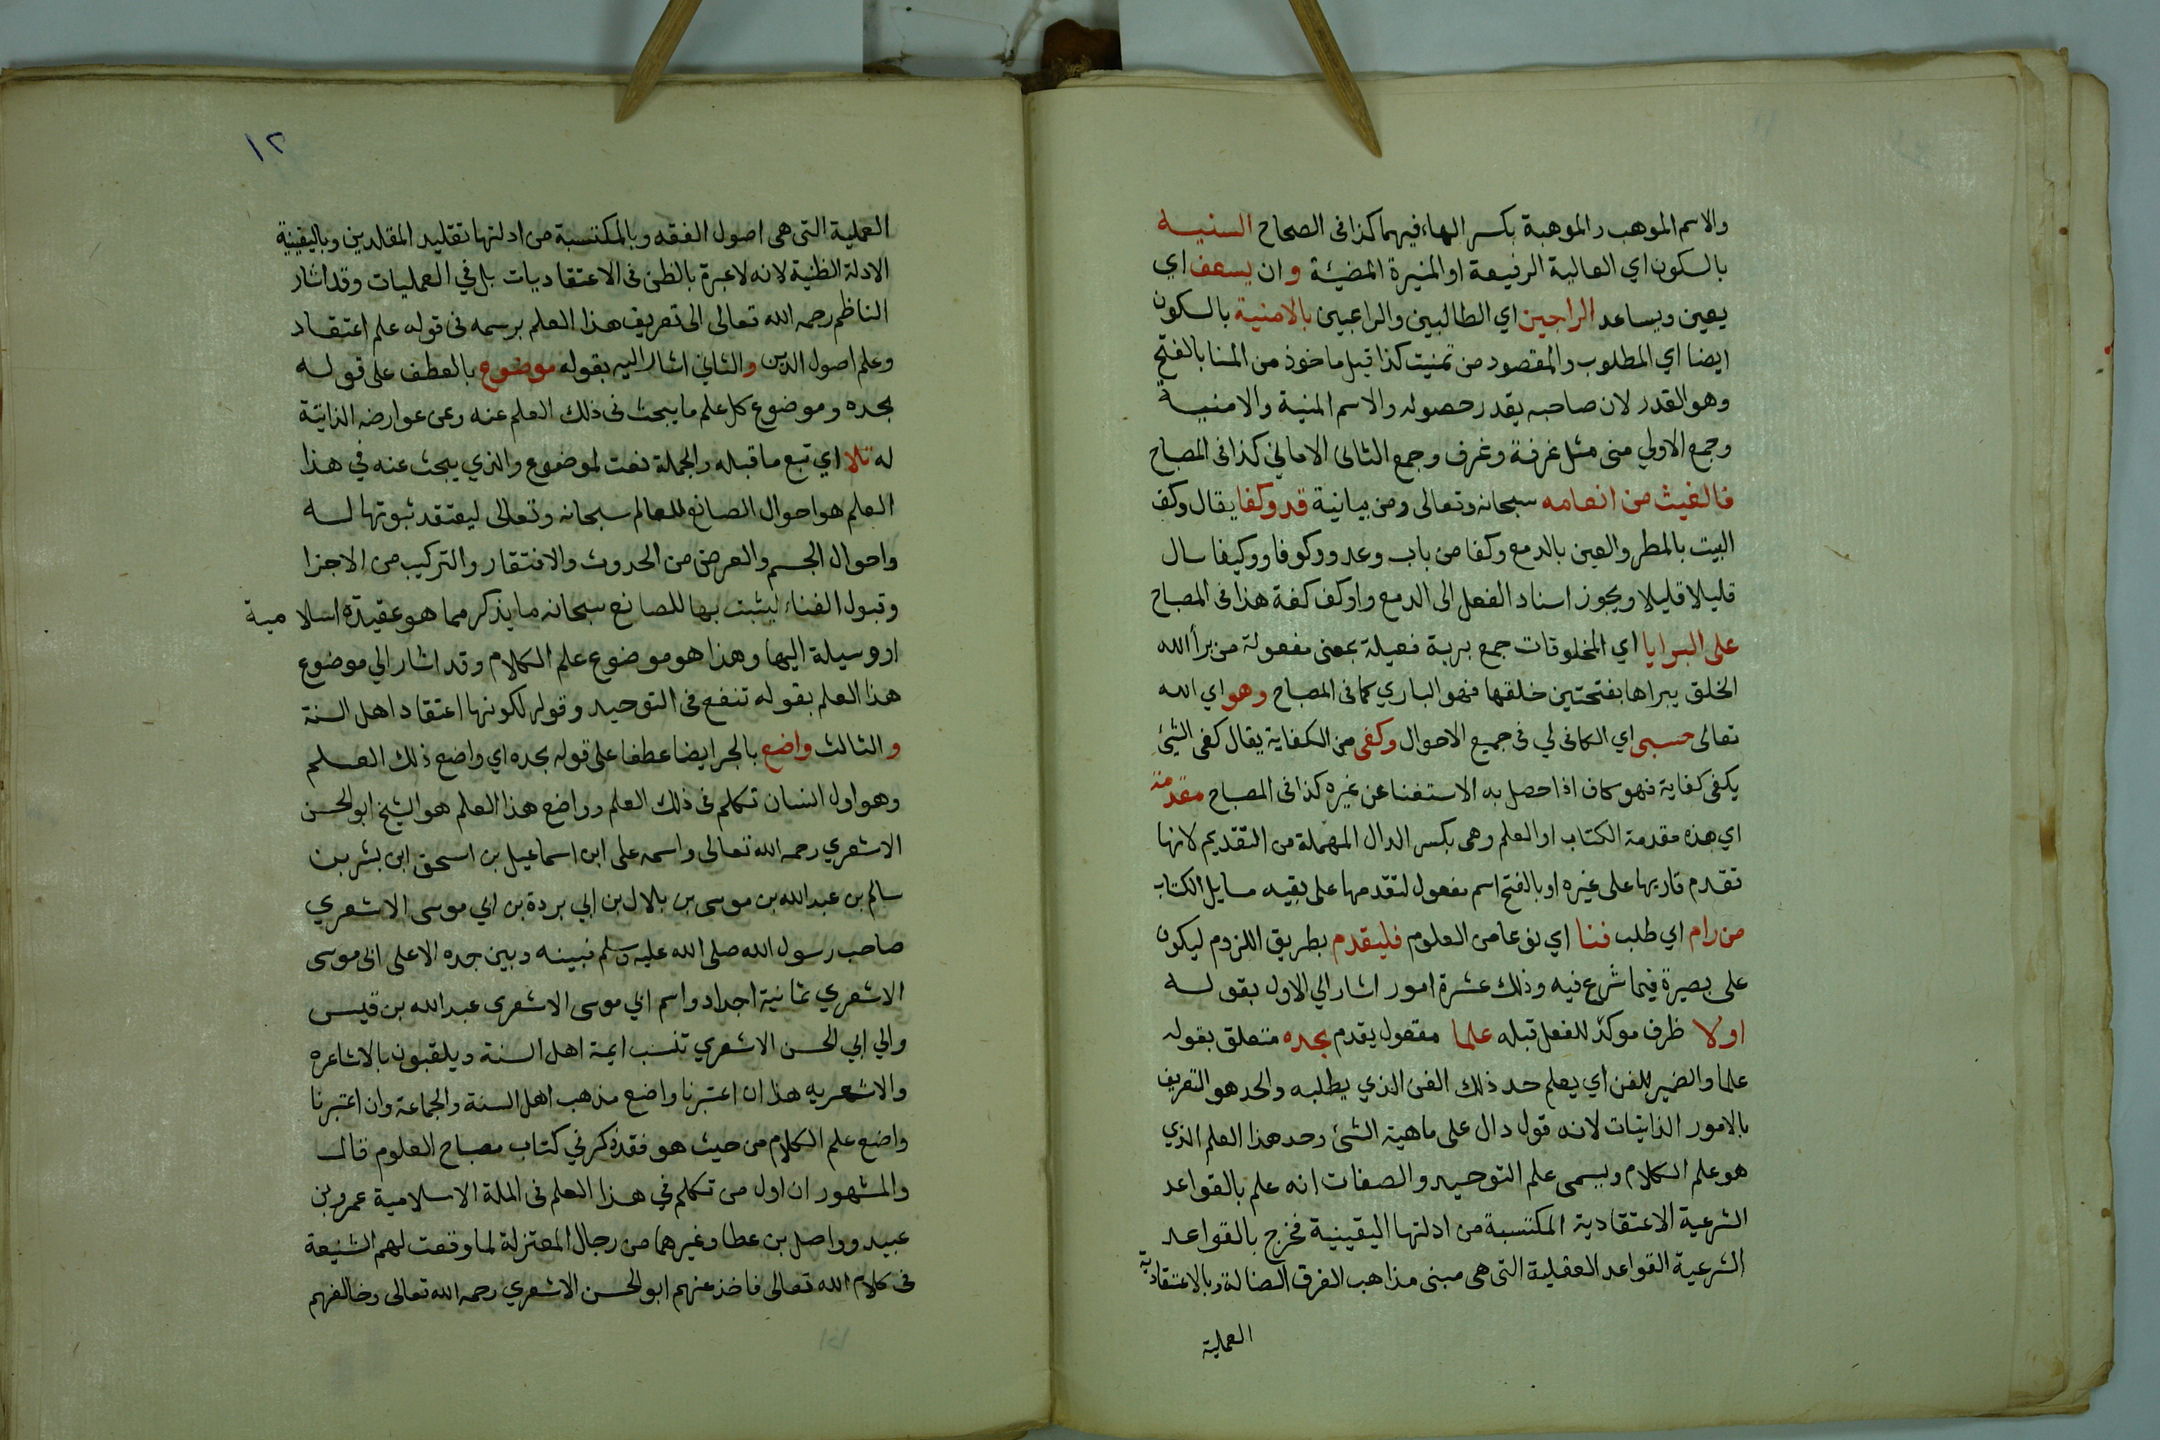 والاسم الموهب والموهبة بكسر الهاء فيهما كذا فى الصحاح السنيه
بالسكون اي العالية الرفيعة او المنيرة المضيئة وان يسعف اي
يعين ويساعد الراجين اي الطالبين والراغبين بالامنية بالسكون
ايضا اي المطلوب والمقصود من تمنيت كذا قيل ماخوذ من المنا بالفتح
وهو القدر لان صاحبه يقدر حصوله والاسم المنية والامنية
وجمع الاولي منى مثل غرفة وغرف وجمع الثانى الاماني كذا فى المصباح
فالغيث من انعامه سبحانه وتعالى ومن بيانية قد وكفا يقال وكف
البيت بالمطر والعين بالدمع وكفا من باب وعد ووكوفا ووكيفا سال
قليلا قليلا ويجوز اسناد الفعل الى الدمع واوكف كفة هذا فى المصباح
على البرايا اي المخلوقات جمع برية فعيلة بمعنى مفعولة من برأ الله
الخلق يبراها بفتحتين خلقها فهو الباري كما فى المصباح وهو اي الله
تعالى حسبى اي الكافى لي فى جميع الاحوال وكفى من الكفاية يقال كفى الشئ
يكفى كفاية فهو كاف اذا حصل به الاستغنا عن غيره كذا فى المصباح مقدمة
اي هذه مقدمة الكتاب او العلم وهى بكسر الدال المهملة من التقديم لانها
تقدم قاريها على غيره او بالفتح اسم مفعول لتقدمها على بقيه مسايل الكتاب
من رام اي طلب فنا اي نوعا من العلوم فليقدم بطريق اللزوم ليكون
على بصيرة فيما شرع فيه وذلك عشرة امور اشار الي الاول بقوله
اولا ظرف موكد للفعل قبله علما مفعول يقدم بحده متعلق بقوله
علما والضمير للفن اي يعلم حد ذلك الفن الذي يطلبه والحد هو التعريف
بالامور الذاتيات لانه قول دال على ماهية الشئ وحد هذا العلم الذي
هو علم الكلام ويسمى علم التوحيد والصفات انه علم بالقواعد
الشرعية الاعتقادية المكتسبة من ادلتها اليقينية فخرج بالقواعد
الشرعية القواعد العقلية التى هى مبنى مذاهب الفرق الضالة وبالاعتقادية
العملية
١٢
العملية التى هى اصول الفقه وبالمكتسبة من ادلتها تقليد المقلدين وباليقينية
الادلة الظنية لانه لاعبرة بالظن فى الاعتقاديات بل في العمليات وقد اشار
الناظم رحمه الله تعالى الى تعريف هذا العلم برسمه فى قوله علم اعتقاد
وعلم اصول الدين والثاني اشار اليه بقوله موضوع بالعطف على قوله
بحده وموضوع كل علم ما يبحث فى ذلك العلم عنه وعن عوارضه الذاتية
له تلا اي تبع ما قبله والجملة نعت لموضوع والذي يبحث عنه في هذا
العلم هو احوال الصانع للعالم سبحانه وتعالى ليعتقد ثبوتها له
واحوال الجسم والعرض من الحدوث والافتقار والتركيب من الاجزا
وقبول الفناء ليثبت بها للصانع سبحانه ما يذكر مما هو عقيدة اسلامية
او وسيلة اليها وهذا هو موضوع علم الكلام وقد اشار الي موضوع
هذا العلم بقوله تنفع فى التوحيد وقوله لكونها اعتقاد اهل السنة
والثالث واضع بالجر ايضا عطفا على قوله بحده اي واضع ذلك العلم
وهو اول انسان تكلم فى ذلك العلم وواضع هذا العلم هو الشيخ ابو الحسن
الاشعري رحمه الله تعالى واسمه على ابن اسماعيل بن اسحق ابن بشر بن
سالم بن عبد الله بن موسى بن بلال بن ابي بردة بن ابي موسى الاشعري
صاحب رسول الله صلى الله عليه وسلم فبينه وبين جده الاعلى ابى موسى
الاشعري ثمانية اجداد واسم ابي موسى الاشعرى عبد الله بن قيس
والي ابي الحسن الاشعري تنسب ايمة اهل السنة ويلقبون بالاشاعره
والاشعريه هذا ان اعتبرنا واضع مذهب اهل السنة والجماعة وان اعتبرنا
واضع علم الكلام من حيث هو فقد ذكر في كتاب مصباح العلوم قال
والمشهور ان اول من تكلم في هذا العلم فى الملة الاسلامية عمرو بن
عبيد وواصل بن عطا وغيرهما من رجال المعتزلة لما وقعت لهم الشنيعة
فى كلام الله تعالى فاخذ عنهم ابو الحسن الاشعري رحمه الله تعالى وخالفهم